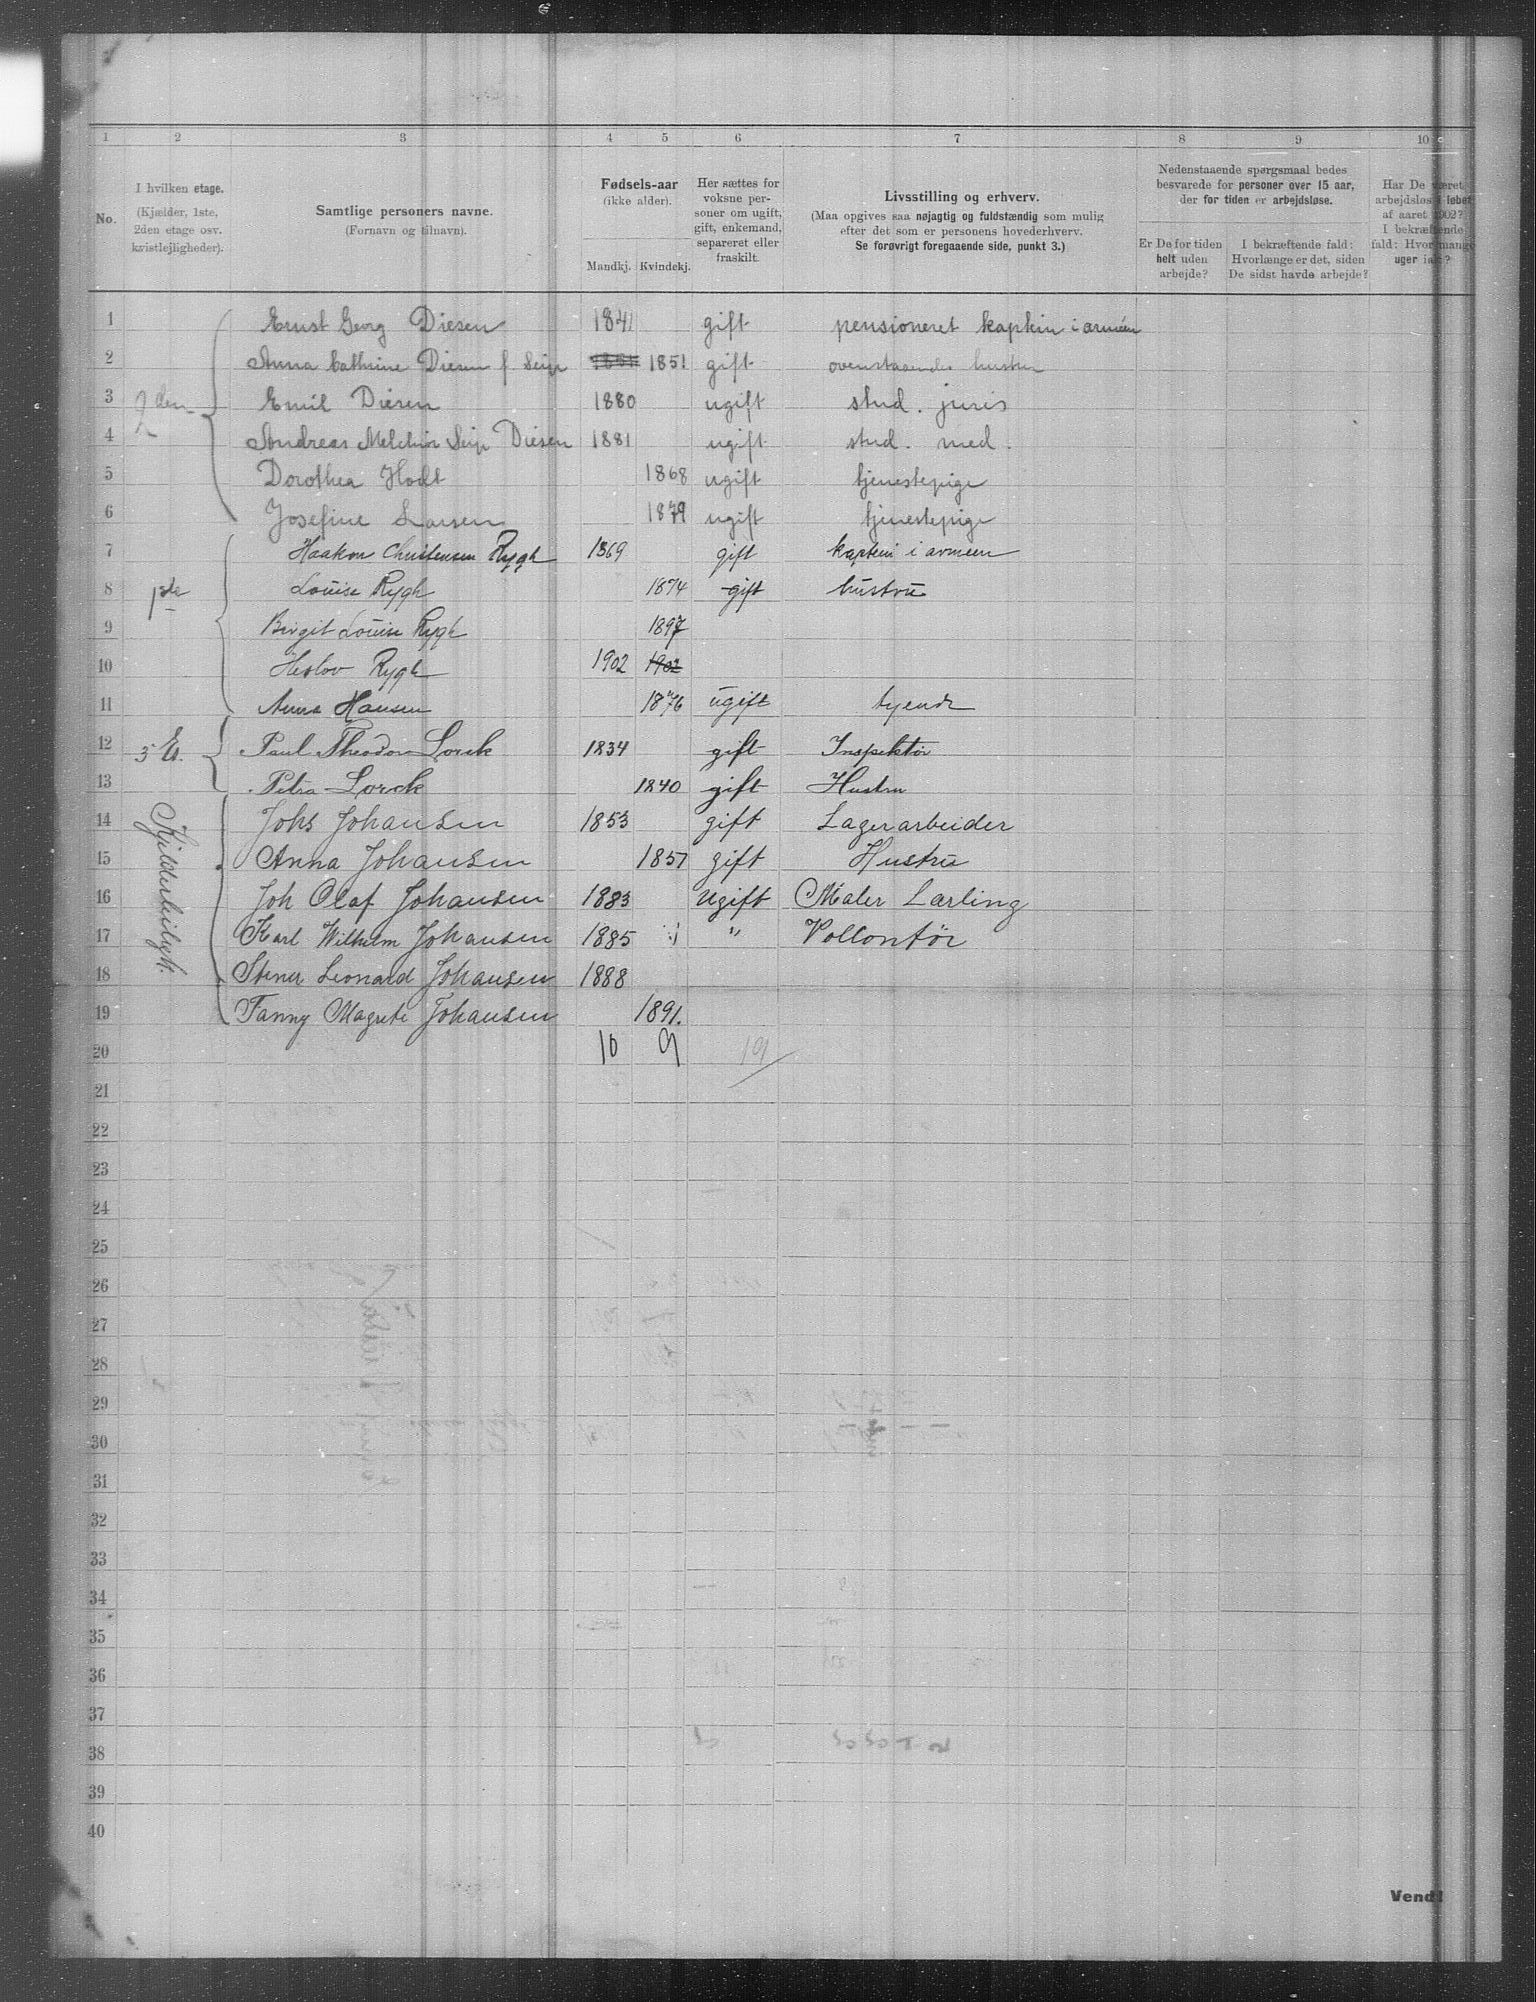 1 2 3 4 5 6 7 8 9 10
No.
I hvilken etage.
(Kjælder, 1ste,
2den etage osv.
kvistlejligheder).
Samtlige personers navne.
(Fornavn og tilnavn).
Fødsels-aar
(ikke alder).
Mandkj. Kvindekj.
Her sættes for
voksne per-
soner om ugift,
gift, enkemand,
separeret eller
fraskilt.
Livsstilling og erhverv.
(Maa opgives saa nøjagtig og fuldstændig som mulig
efter det som er personens hovederhverv.
Se forøvrigt foregaaende side, punkt 3.)
Nedenstaaende spørgsmaal bedes
besvarede for personer over 15 aar,
der for tiden er arbejdsløse.
Er De for tiden
helt uden
arbejde?
I bekræftende fald:
Hvorlænge er det, siden
De sidst havde arbejde?
Har De været
arbejdsløs i løbet
af aaret 1902?
I bekræftende
fald: Hvor mange
uger ialt?
1 Ernst Georg Diesen 1841 gift pensioneret kaptein i arméen
2 Anna Cathrine Diesen f. Seip 1851 1851 gift ovenstaaendes hustru
3 2den Emil Diesen 1880 ugift stud. juris
4 Andreas Melchior Seip Diesen 1881 ugift stud. med.
5 Dorothea Hodt 1868 ugift tjenestepige
6 Josefine Larsen 1879 ugift tjenestepige
7 Haakon Christensen Rygh 1869 gift kaptein i armeen
8 1ste Louise Rygh 1874 gift hustru
9 Birgit Louise Rygh 1897
10 Rygh 1902 1902
11 Anna Hansen 1876 ugift tyende
12 3 Et. Paul Theodor Lorck 1834 gift Inspektør
13 Petra Lorck 1840 gift Hustru
14 Johs Johansen 1853 gift Lagerarbeider
15 Anna Johansen 1857 gift Hustru
16 Joh Olaf Johansen 1883 Ugift Maler Lærling
17 Karl Wilhelm Johansen 1885 " Vollontør
18 Stener Leonard Johansen 1888
19 Fanny Magrete Johansen 1891.
20 10 9 19
21
22
23
24
25
26
27
28
29
30
31
32
33
34
35
36
37
38
39
40
Vend!